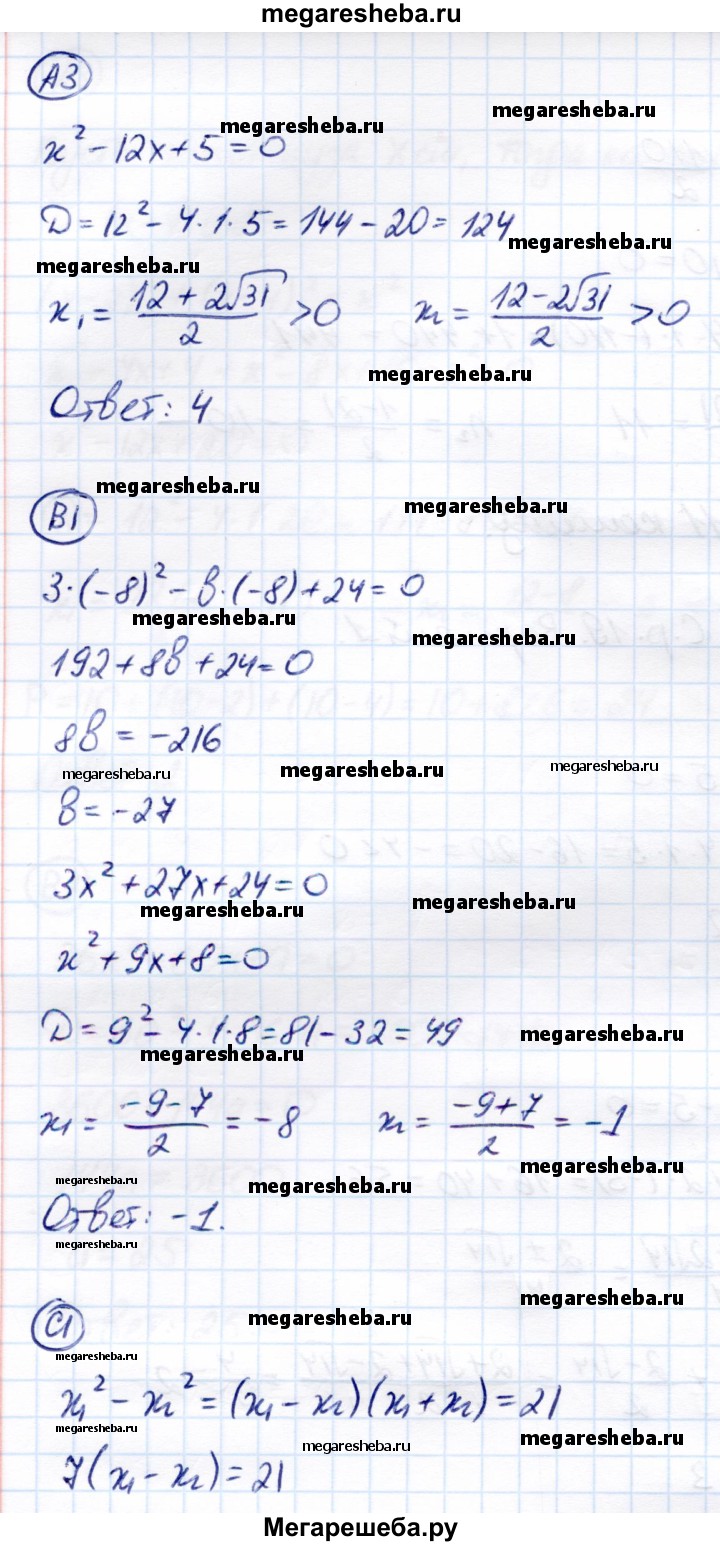 megaresheba.ru
А3
megaresheba.ru
megaresheba.ru
x² - 12x + 5 = 0
D = 12² - 4·1·5 = 144 - 20 = 124
megaresheba.ru
megaresheba.ru
x₁ = (12 + 2√31)/2 > 0    x₂ = (12 - 2√31)/2 > 0
megaresheba.ru
Ответ: 4
megaresheba.ru
megaresheba.ru
В1
3·(-8)² - в·(-8) + 24 = 0
megaresheba.ru
megaresheba.ru
192 + 8в + 24 = 0
8в = -216
megaresheba.ru
megaresheba.ru
megaresheba.ru
в = -27
3x² + 27x + 24 = 0
megaresheba.ru
megaresheba.ru
x² + 9x + 8 = 0
D = 9² - 4·1·8 = 81 - 32 = 49
megaresheba.ru
megaresheba.ru
x₁ = (-9-7)/2 = -8    x₂ = (-9+7)/2 = -1
megaresheba.ru
megaresheba.ru
megaresheba.ru
Ответ: -1.
megaresheba.ru
megaresheba.ru
С1
megaresheba.ru
megaresheba.ru
x₁² - x₂² = (x₁ - x₂)(x₁ + x₂) = 21
megaresheba.ru
megaresheba.ru
7(x₁ - x₂) = 21
Мегарешеба.ру